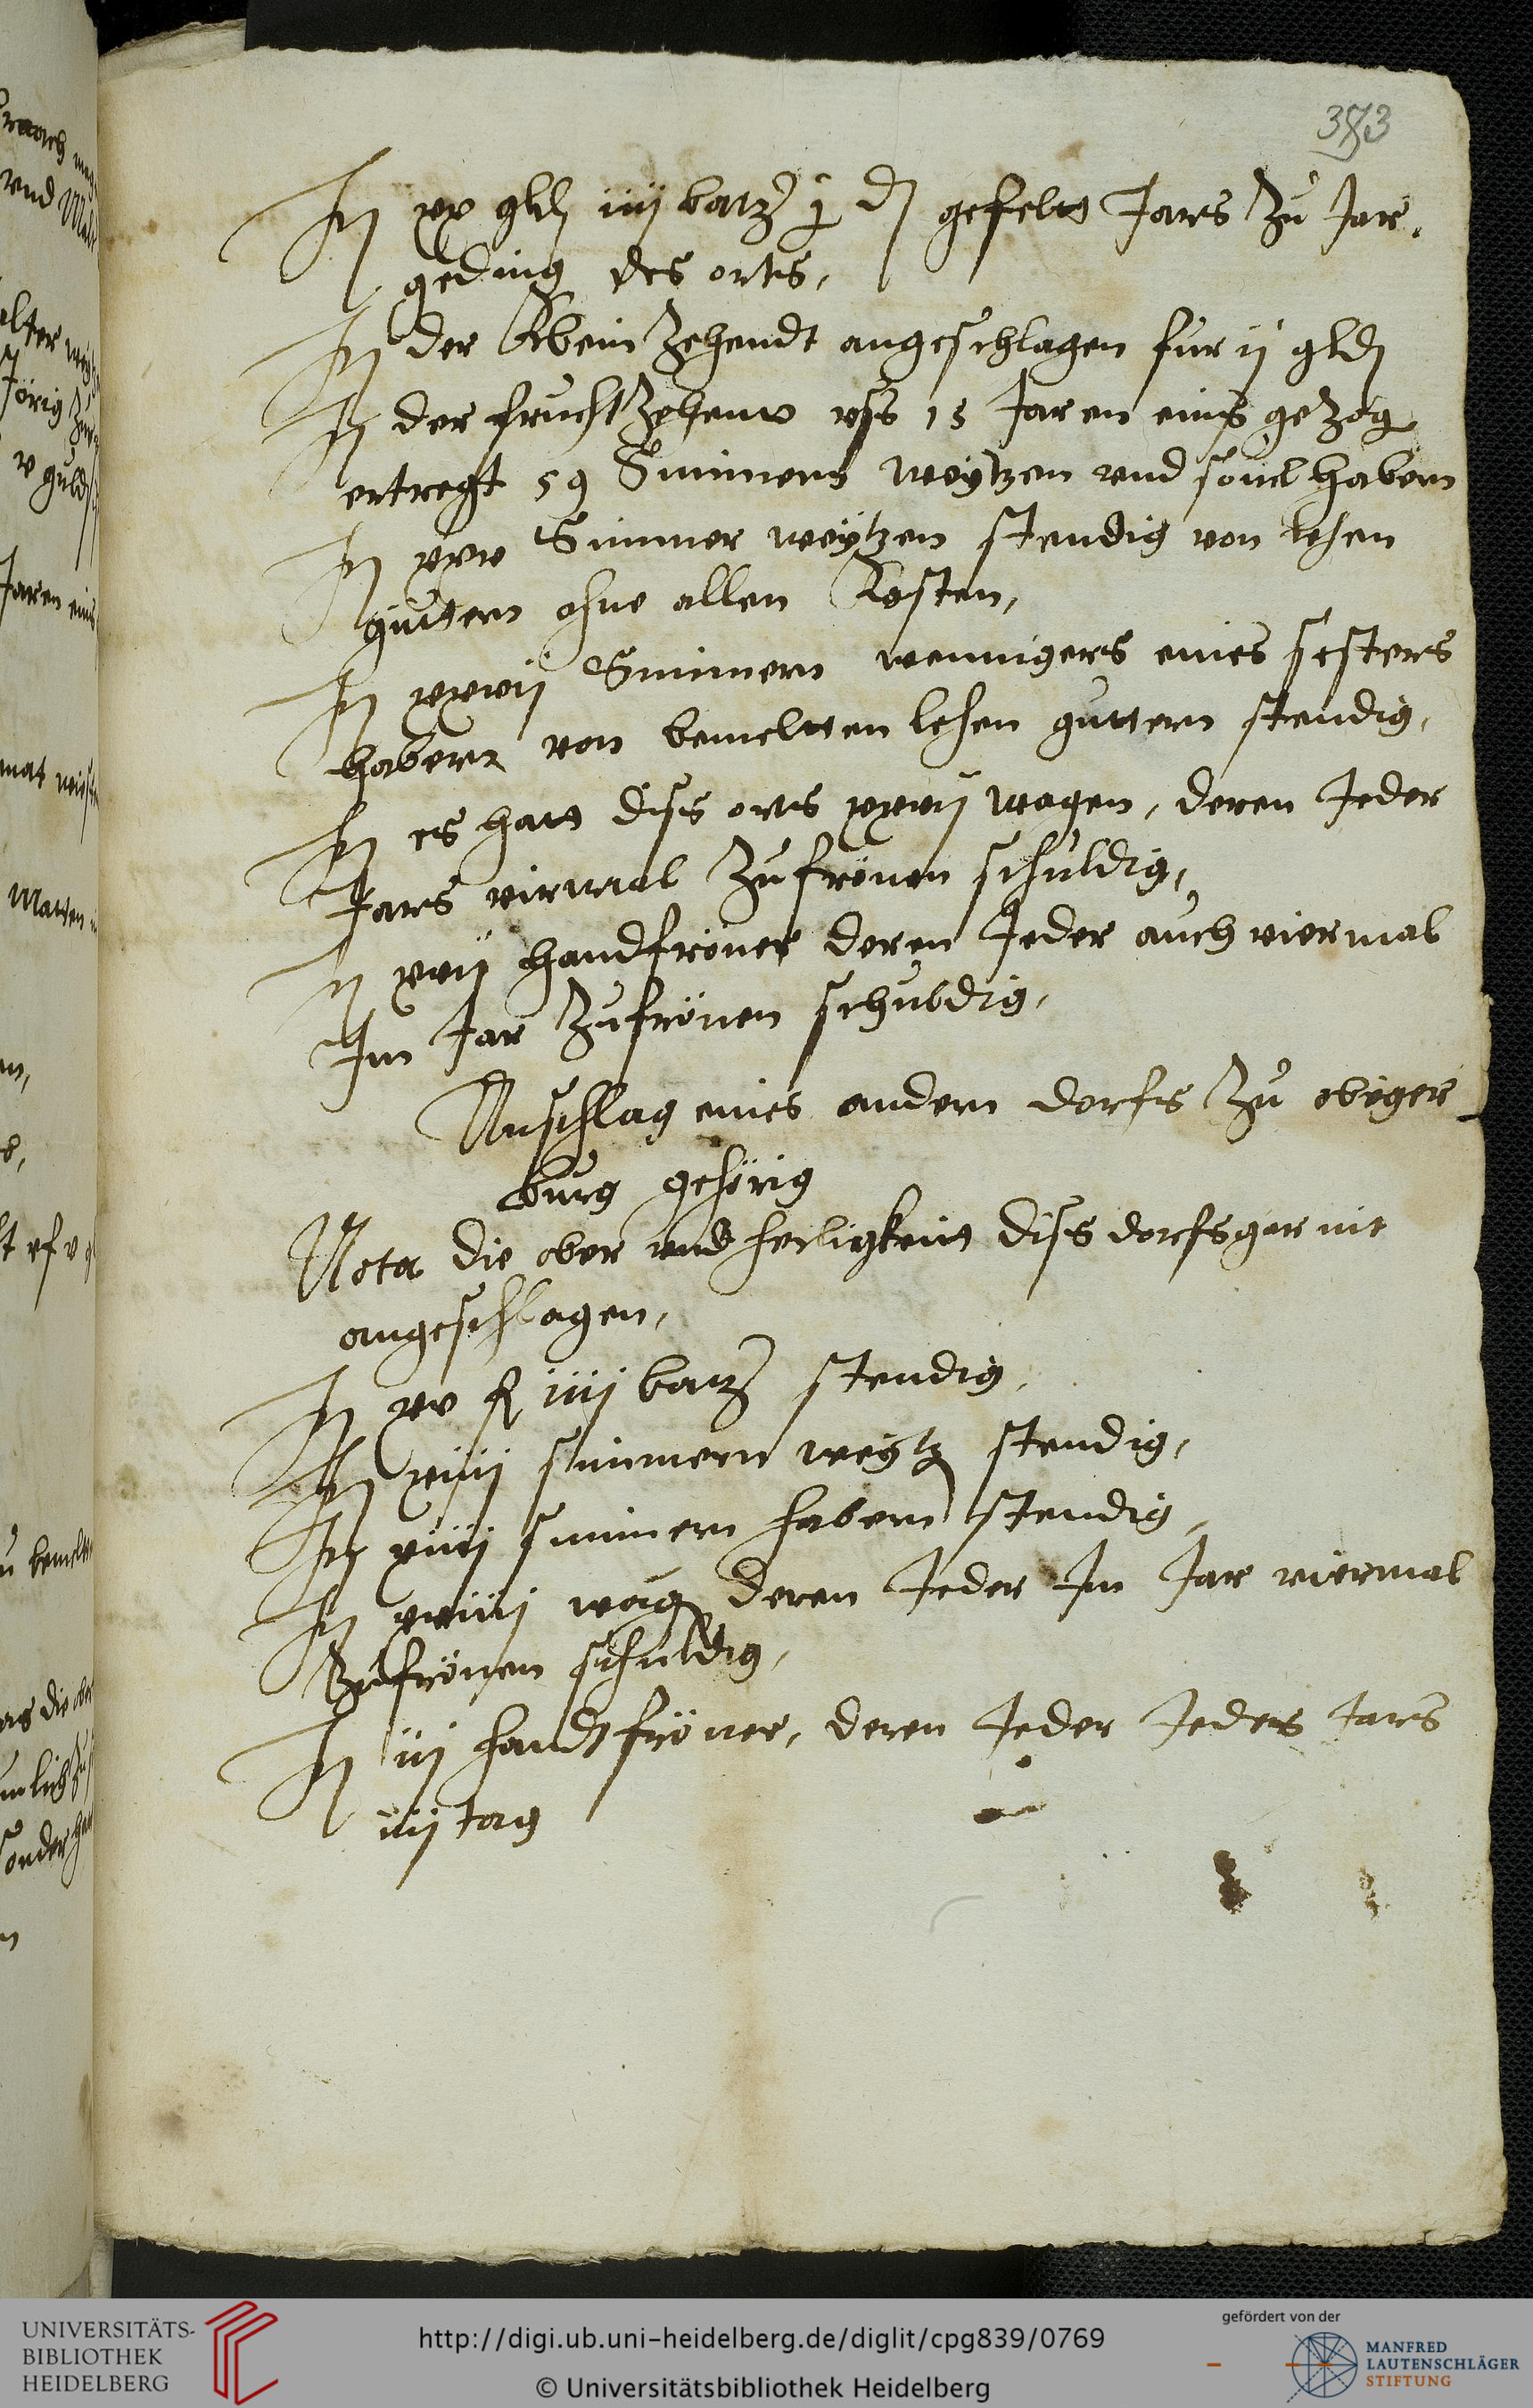 383
It xx gld iiij batz j d gefelt Jars zu Jar-
geding des orts,
It der klein Zehendt angeschlagen fur ij gld
It der frucht Zehent vss 15 Jaren eins gezog
ertregt 59 Simmern weytzen vnd souil habern
It xxv Simmer weytzen stendig von lehen
güttern ohne allen Kosten,
It xxvij Simmern wennigers eines sesters
habern von bemeltten lehen guttern stendig,
It es hatt diss orts xxvij wagen, deren Jeder
Jars viermal zufrönen schuldig,
It xvij handfröner deren Jeder auch viermal
Im Jar zufrönen schuldig,
Anschlag eines andern dorfs zu obiger
burg gehörig
Nota die ober vnd herligkeit diss dorfs gar nit
angeschlagen,
It xv fl iiij batz stendig,
It xiiij simmern weytz stendig,
It xiiij simmern habern stendig,
It xviiij wäg deren Jeder Im Jar viermal
Zufrönen schuldig,
It iij handtfröner, deren Jeder Jeders Jars
iiij tag
alter
Jörig
v guld
Jaren eins
Matten
vnd
sonder
UNIVERSITÄTS-
BIBLIOTHEK
HEIDELBERG
http://digi.ub.uni-heidelberg.de/diglit/cpg839/0769
© Universitätsbibliothek Heidelberg
gefördert von der
MANFRED
LAUTENSCHLÄGER
STIFTUNG